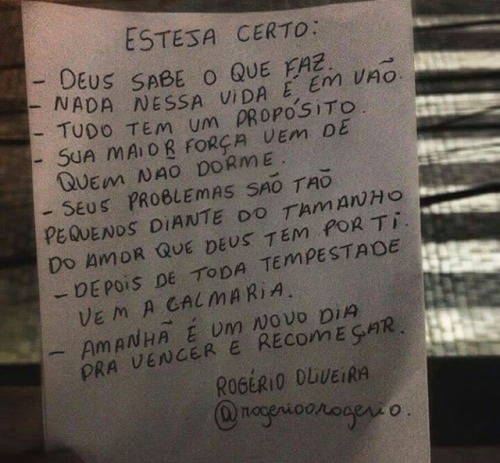 ESTEJA CERTO:
- DEUS SABE O QUE FAZ.
- NADA NESSA VIDA É EM VÃO.
- TUDO TEM UM PROPÓSITO.
- SUA MAIOR FORÇA VEM DE
QUEM NÃO DORME.
- SEUS PROBLEMAS SÃO TÃO
PEQUENOS DIANTE DO TAMANHO
DO AMOR QUE DEUS TEM POR TI.
- DEPOIS DE TODA TEMPESTADE
VEM A CALMARIA.
- AMANHÃ É UM NOVO DIA
PRA VENCER E RECOMEÇAR.
ROGÉRIO OLIVEIRA
@rogerioorogerio.